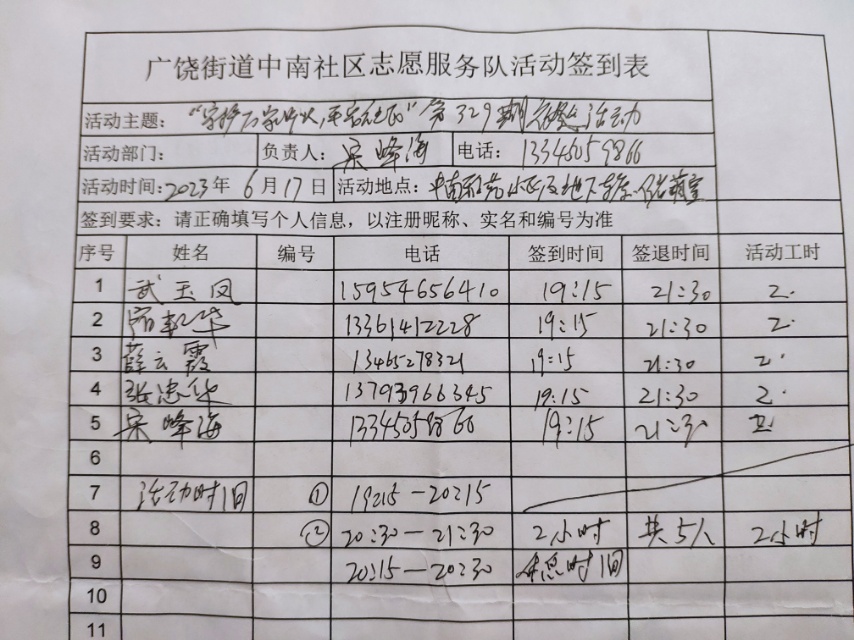 广饶街道中南社区志愿服务队活动签到表
活动主题: 第329期 活动
活动部门: 负责人: 宋峰海 电话:
活动时间:2023年6月17日 活动地点:
签到要求: 请正确填写个人信息，以注册昵称、实名和编号为准
序号 姓名 编号 电话 签到时间 签退时间 活动工时
1 武玉凤 15954656410 19:15 21:30 2.
2 13361412228 19:15 21:30 2.
3 薛云霞 13465278321 19:15 21:30 2.
4 张忠华 19:15 21:30 2.
5 宋峰海 19:15 21:30 2.
6
7 活动时间 ① 19:15-20:15
8 ② 20:30-21:30 2小时 共5人 2小时
9 20:15-20:30 休息时间
10
11